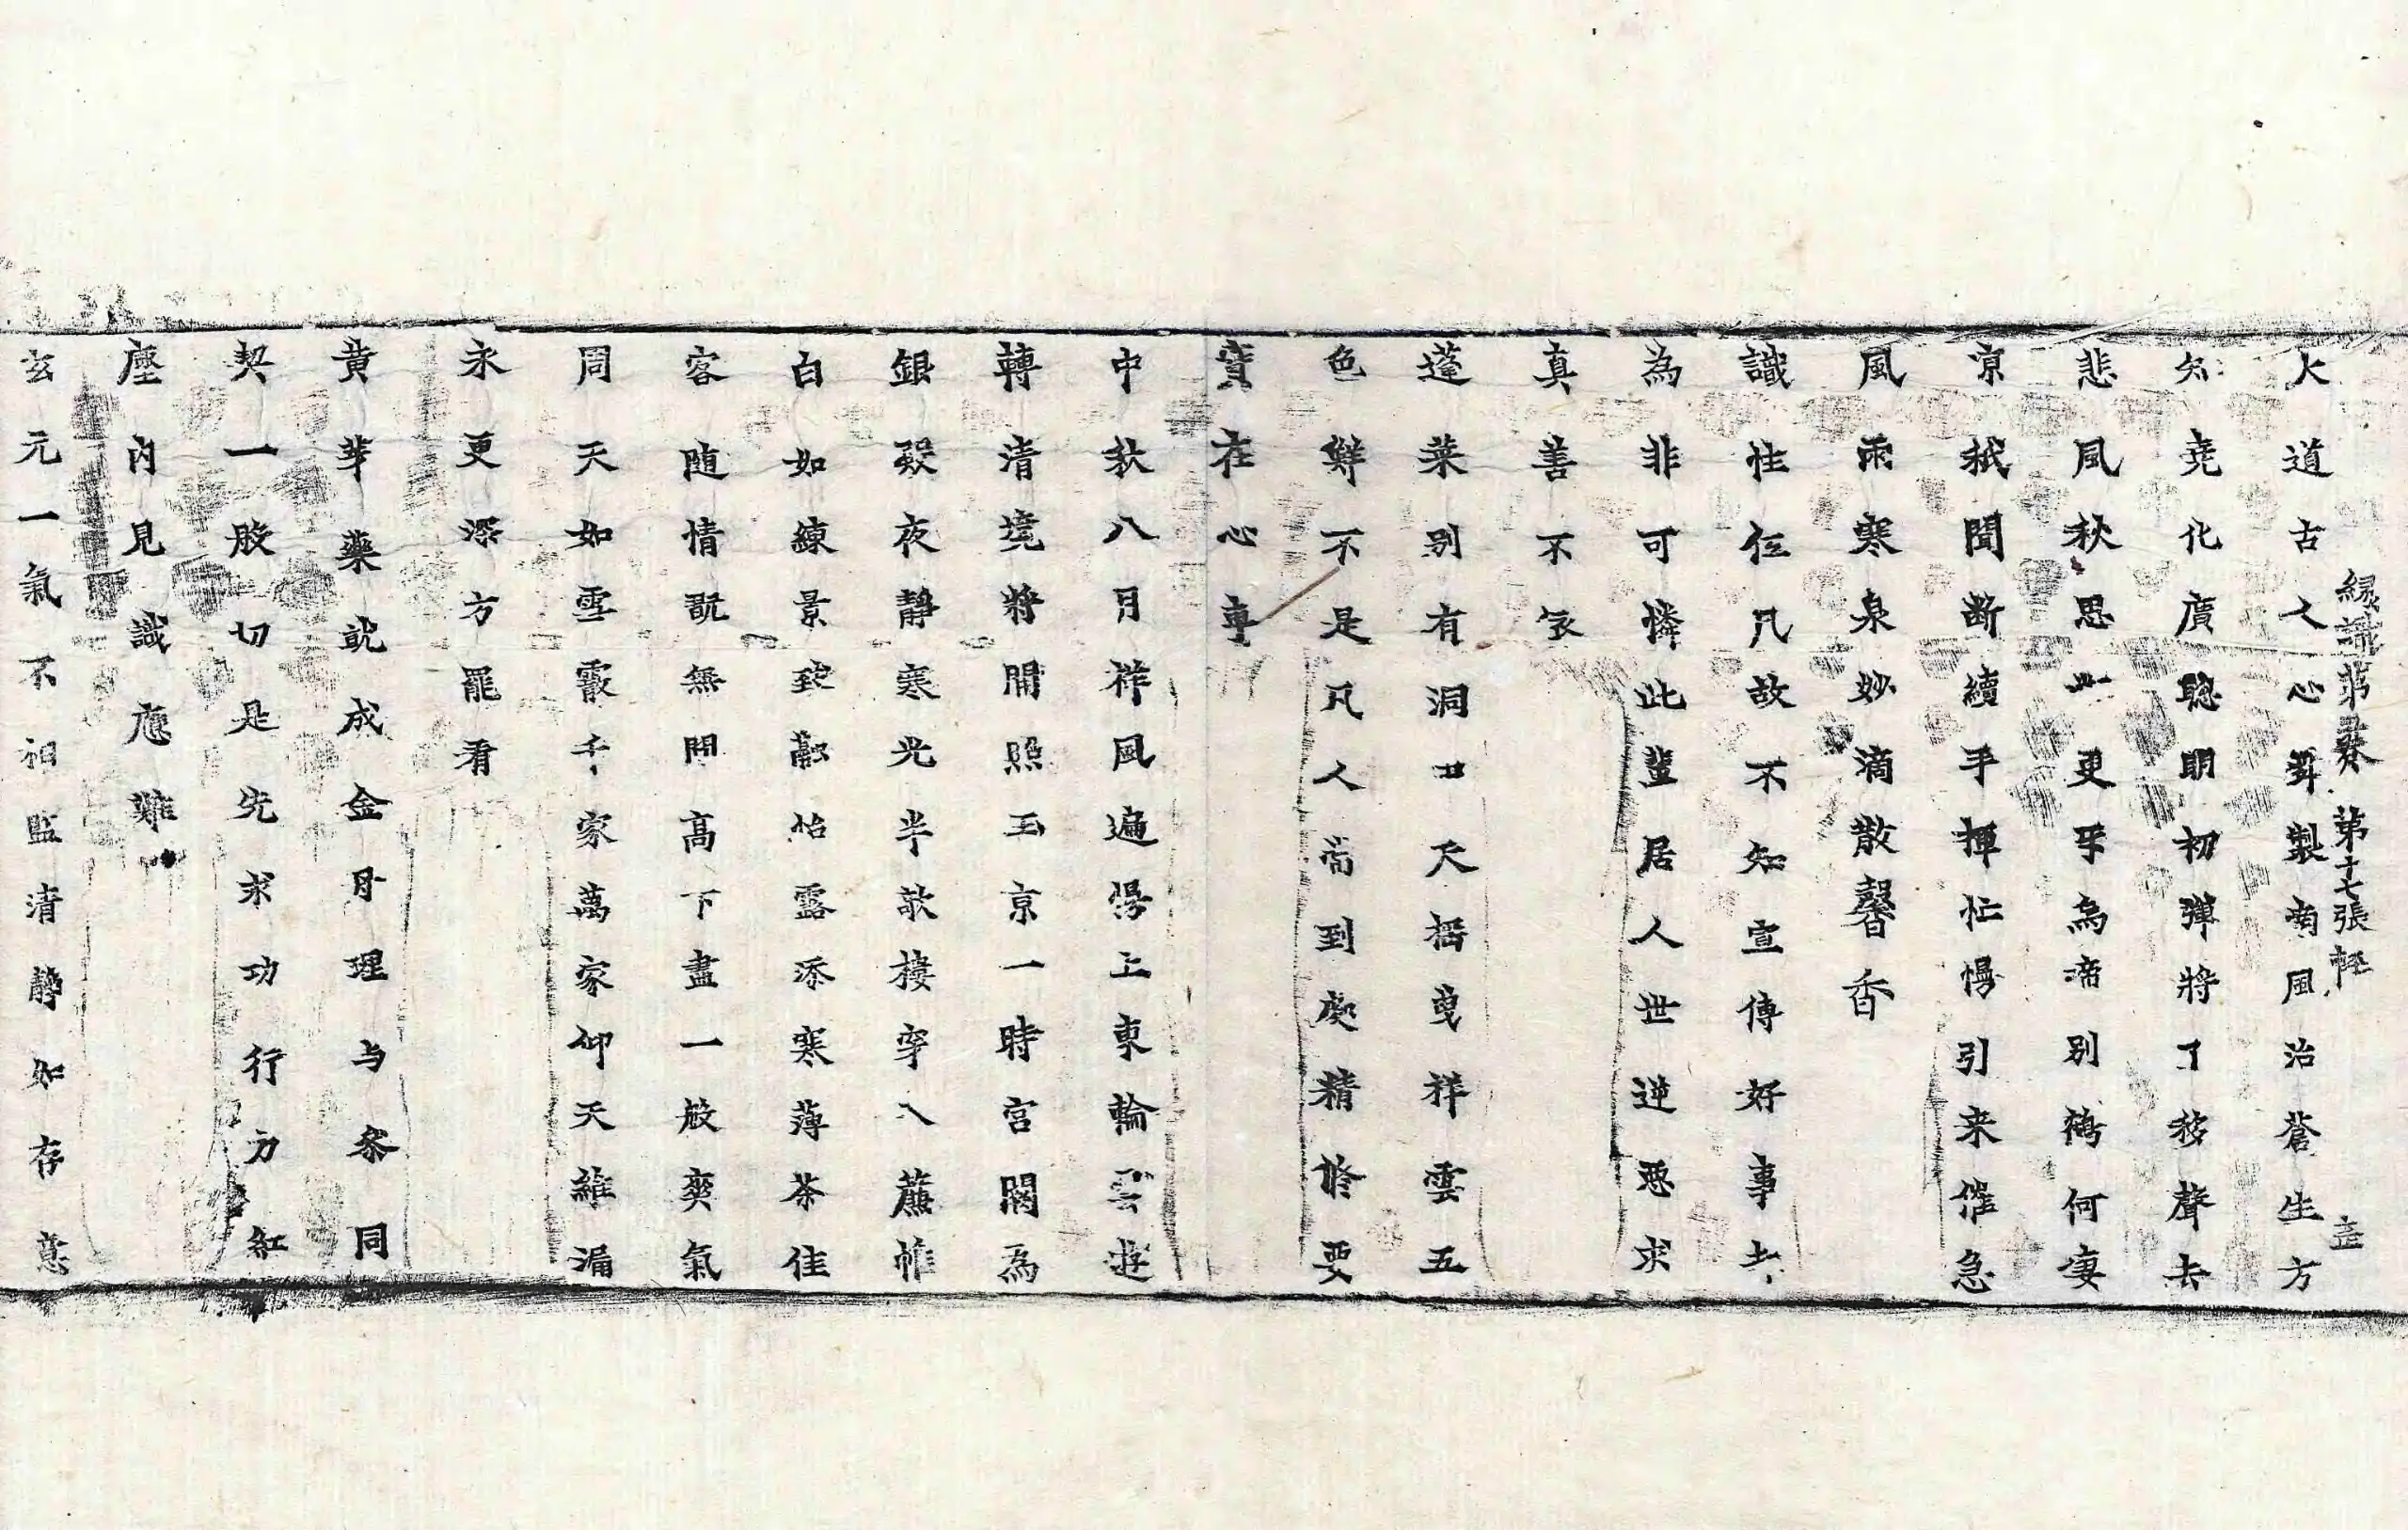 緣識第五卷 第十七張 經
大道古人心舜製南風治蒼生方
知堯化廣聡明初彈將了移聲去
悲風秋思世更乎為啼別鶴何凄
凉秪聞斷續手揮忙慢引来催急
風雨寒泉妙滴散馨香
識性任凡故不知宣傳好事去
為非可憐此輩居人世逆惡求
真善不容
蓬萊別有洞中天揺曳祥雲五
色鮮不是凡人需到處精修要
寶在心專
中秋八月祥風遍陽上東輪雲遊
轉清境將開照玉京一時宮闕為
銀殿夜静寒光半欹樓穿入簾帷
白如練景致歡怡露添寒薄茶佳
客随情翫無閒高下盡一般爽氣
周天如雪霰千家萬家仰天維漏
永更深方罷看
黄芽藥就成金丹理与叅同
契一般切是先求功行力紅
塵内見識應難
玄元一氣不相監清静如存意